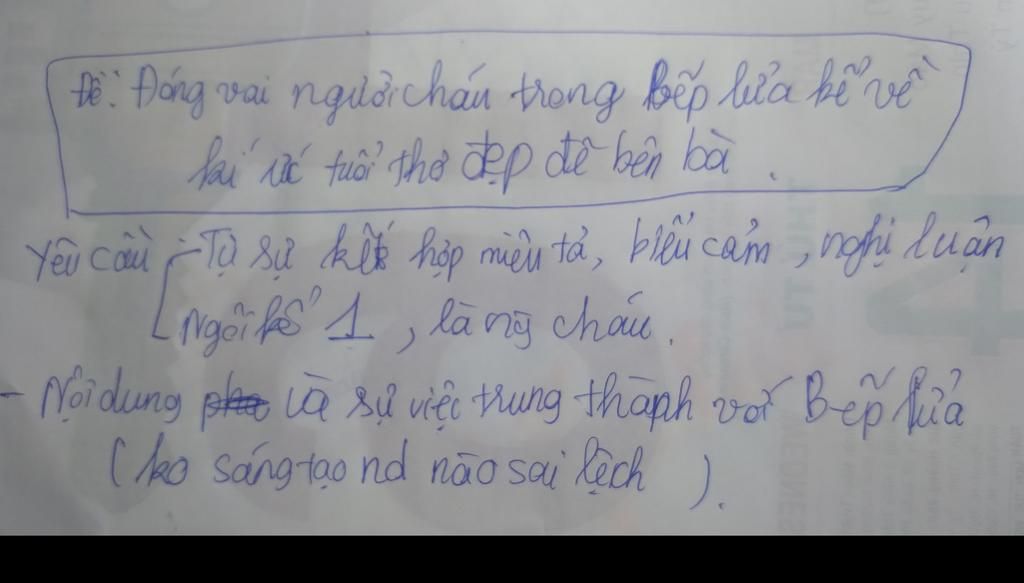 Đề: Đóng vai người cháu trong Bếp lửa kể về
kí ức tuổi thơ đẹp đẽ bên bà.
Yêu cầu - Tự sự kết hợp miêu tả, biểu cảm, nghị luận
Ngôi kể 1, là ng cháu.
- Nội dung và sự việc trung thành với Bếp lửa
(ko sáng tạo nd nào sai lệch).